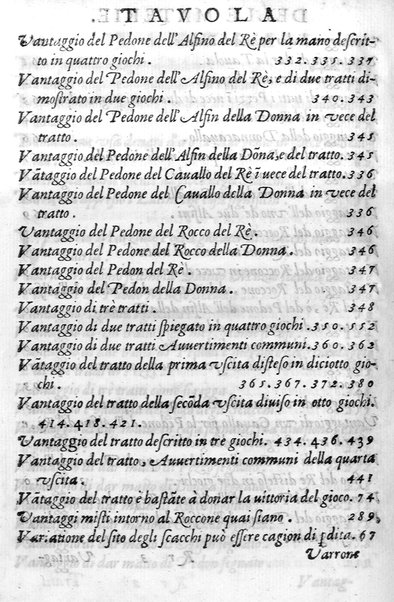 TAVOLA.
Vantaggio del Pedone dell'Alfino del Rè per la mano descrit-
to in quattro giochi. 332.335.337
Vantaggio del Pedone dell'Alfino del Rè, e di due tratti di-
mostrato in due giochi. 340.343
Vantaggio del Pedone dell'Alfin della Donna in vece del
tratto. 345
Vantaggio del Pedone dell'Alfin della Dõna, e del tratto. 345
Vãtaggio del Pedone del Cauallo del Rè ĩ vece del tratto. 336
Vantaggio del Pedone del Cauallo della Donna in vece del
tratto. 336
Vantaggio del Pedone del Rocco del Rè. 346
Vantaggio del Pedone del Rocco della Donna. 346
Vantaggio del Pedon del Rè. 347
Vantaggio del Pedon della Donna. 347
Vantaggio di trè tratti. 348
Vantaggio di due tratti spiegato in quattro giochi. 350.552
Vantaggio di due tratti Auuertimenti communi. 360.362
Vãtaggio del tratto della prima vscita disteso in diciotto gio-
chi. 365.367.372.380
Vantaggio del tratto della secõda vscita diuiso in otto giochi.
414.418.421.
Vantaggio del tratto descritto in tre giochi. 434.436.439
Vantaggio del tratto, Auuertimenti communi della quarta
vscita. 441
Vãtaggio del tratto è bastãte à donar la vittoria del gioco. 74
Vantaggi misti intorno al Roccone quai siano. 289
Variatione del sito degli scacchi può essere cagion di ꝑdita. 67
Varrone